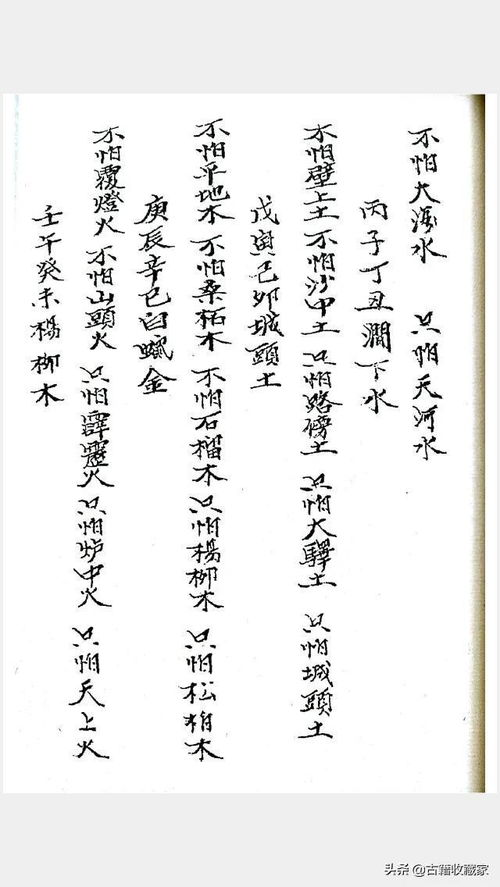 不怕大海水 只怕天河水
丙子丁丑澗下水
不怕壁上土 不怕沙中土 只怕路傍土 只怕大驛土 只怕城頭土
戊寅己卯城頭土
不怕平地木 不怕桑柘木 不怕石榴木 只怕楊柳木 只怕松柏木
庚辰辛巳白蠟金
不怕覆燈火 不怕山頭火 只怕霹靂火 只怕炉中火 只怕天上火
壬午癸未楊柳木
头条 @古籍收藏家